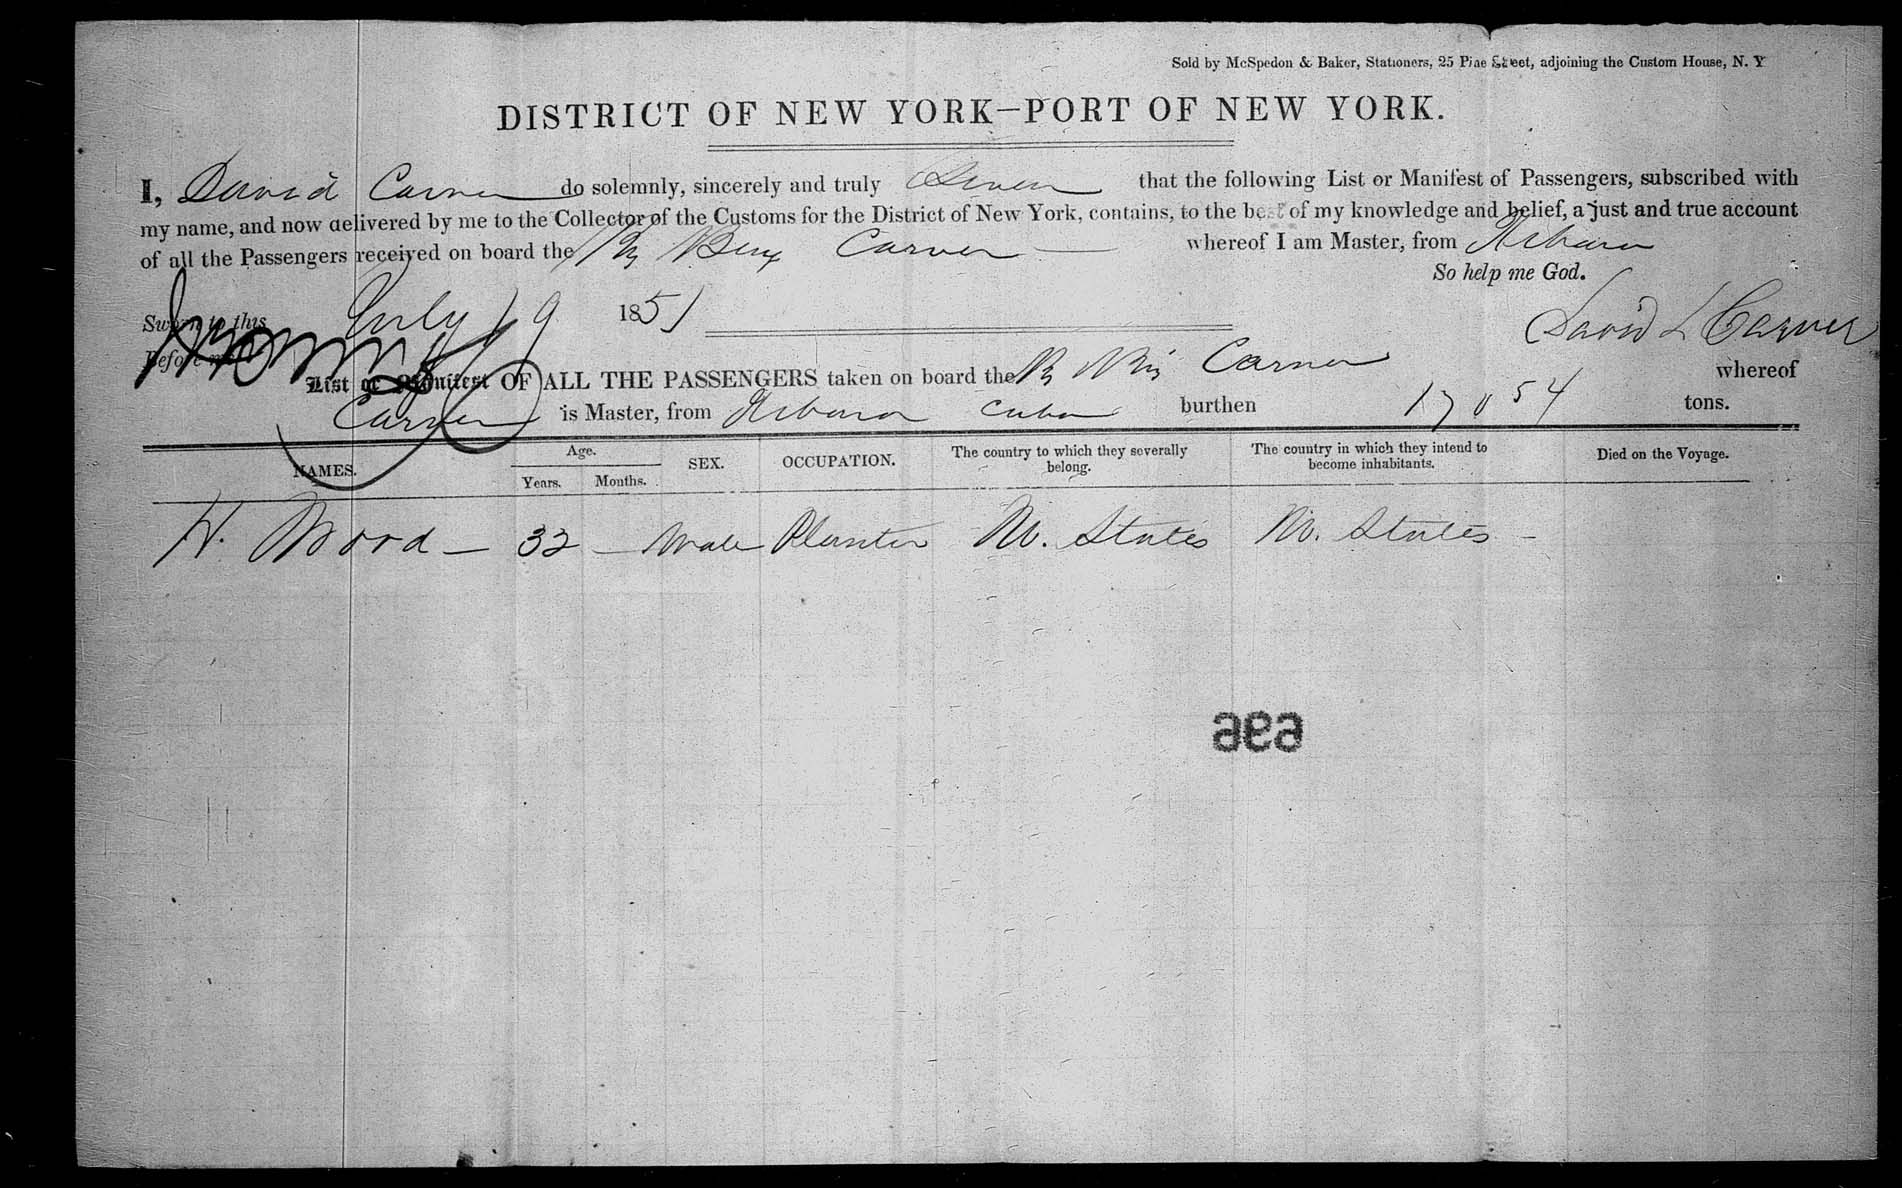 Sold by McSpedon & Baker, Stationers, 25 Pine Street, adjoining the Custom House, N. Y
DISTRICT OF NEW YORK—PORT OF NEW YORK.
I, David Carver do solemnly, sincerely and truly Swear that the following List or Manifest of Passengers, subscribed with
my name, and now delivered by me to the Collector of the Customs for the District of New York, contains, to the best of my knowledge and belief, a just and true account
of all the Passengers received on board the Carver whereof I am Master, from
So help me God.
Sworn to this July 19 1851
David L Carver
Before me
List or Manifest OF ALL THE PASSENGERS taken on board the Carver whereof
Carver is Master, from Cuba burthen 170 54 tons.
NAMES. Age. Years. Months. SEX. OCCUPATION. The country to which they severally belong. The country in which they intend to become inhabitants. Died on the Voyage.
H. Wood — 32 — Male Planter U. States U. States —
696